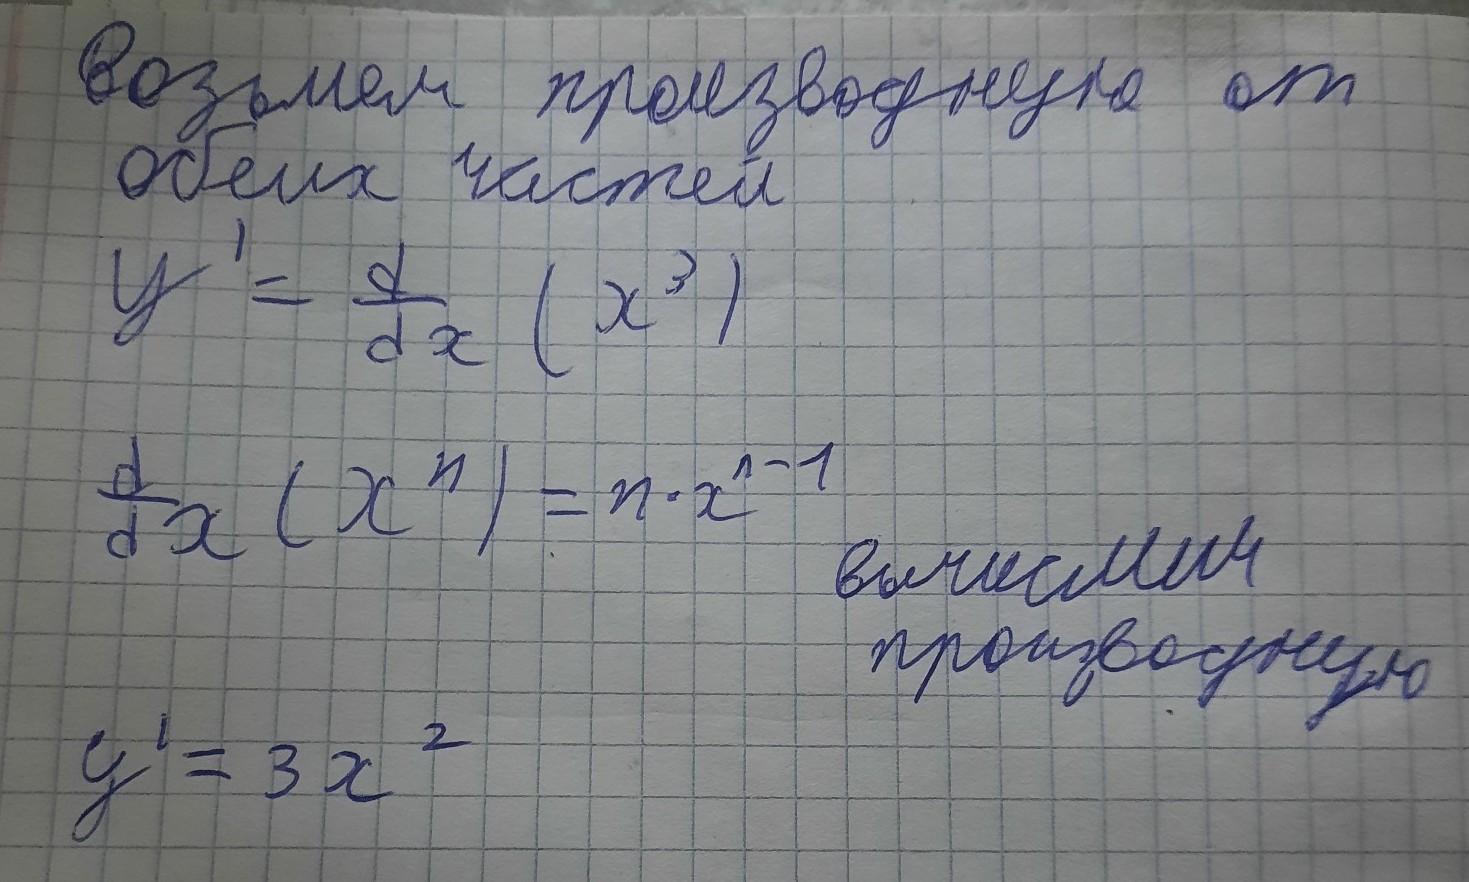 Возьмем производную от
обеих частей
y' = d/dx (x³)
d/dx (xⁿ) = n · xⁿ⁻¹
вычислим
производную
y' = 3x²